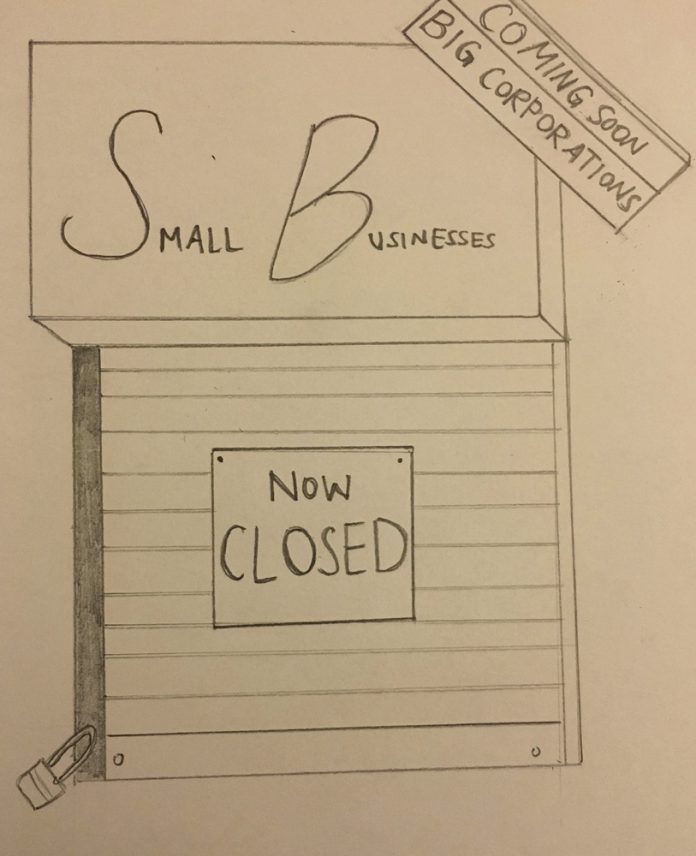 COMING SOON
BIG CORPORATIONS
SMALL BUSINESSES
NOW
CLOSED